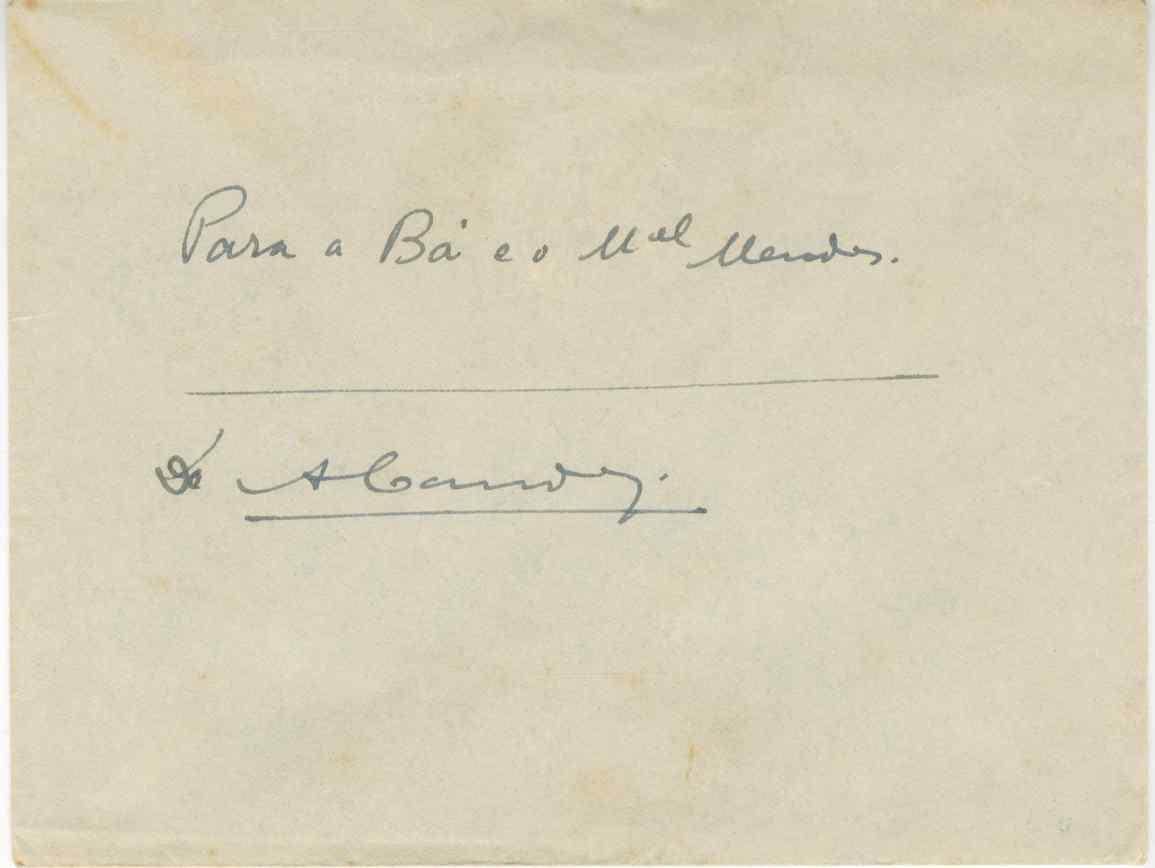 Para a Bá e o M.el Mendes.
De